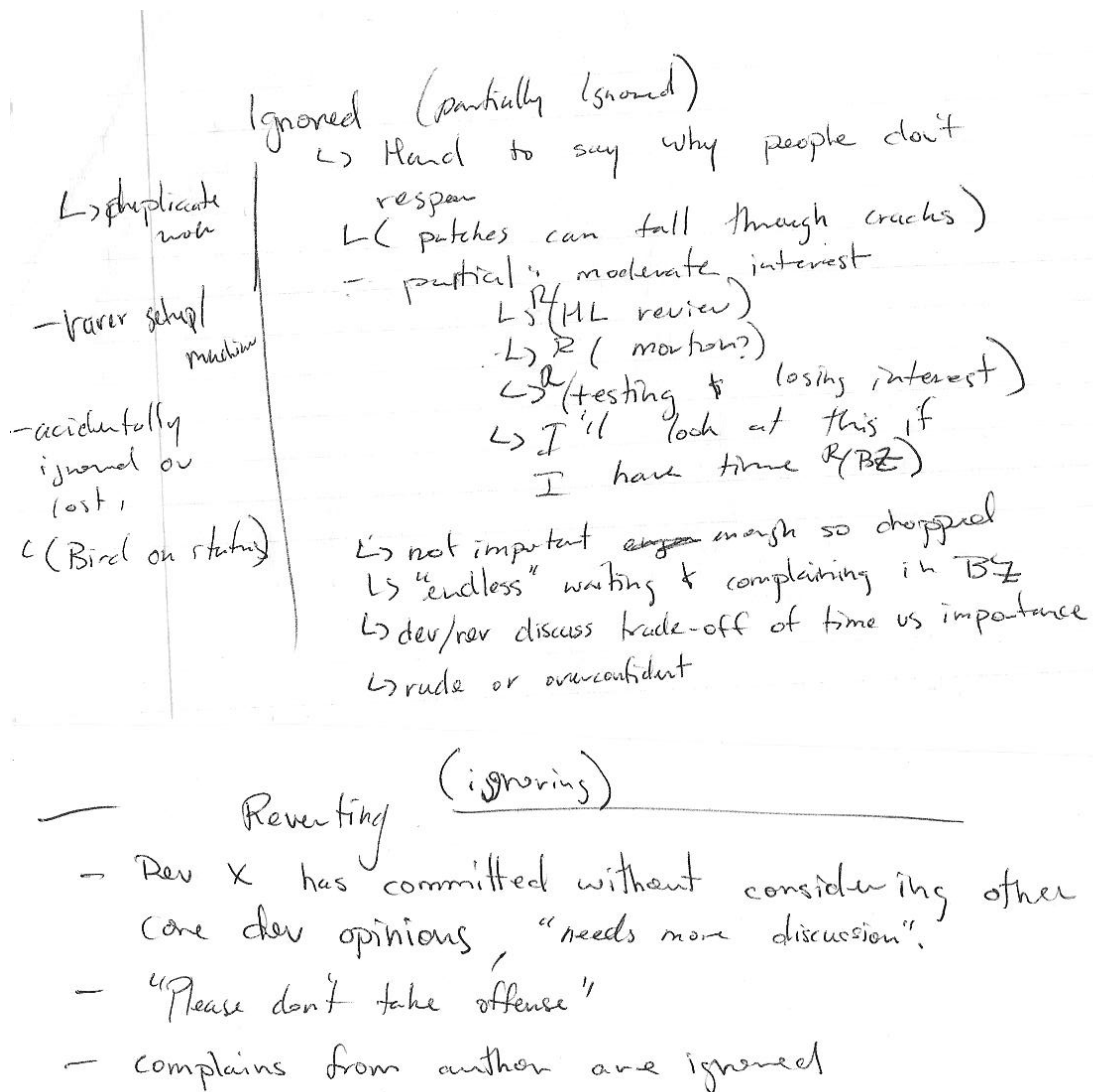 Ignored (partially Ignored)
↳ Hard to say why people don't
respon
↳ ( patches can fall through cracks)
- partial: moderate interest
↳ R/(HL review)
↳ R ( morton?)
↳ R/(testing & losing interest)
↳ I'll look at this if
I have time R/(BZ)
↳ not important enough so dropped
↳ "endless" waiting & complaining in BZ
↳ dev/rev discuss trade-off of time vs importance
↳ rude or overconfident
↳ duplicate
work
- rarer setup/
machine
- acidentally
ignored or
lost,
↳ (Bird on status)
Reverting (ignoring)
- Dev X has committed without considering other
core dev opinions, "needs more discussion".
- "Please don't take offense"
- complains from author are ignored